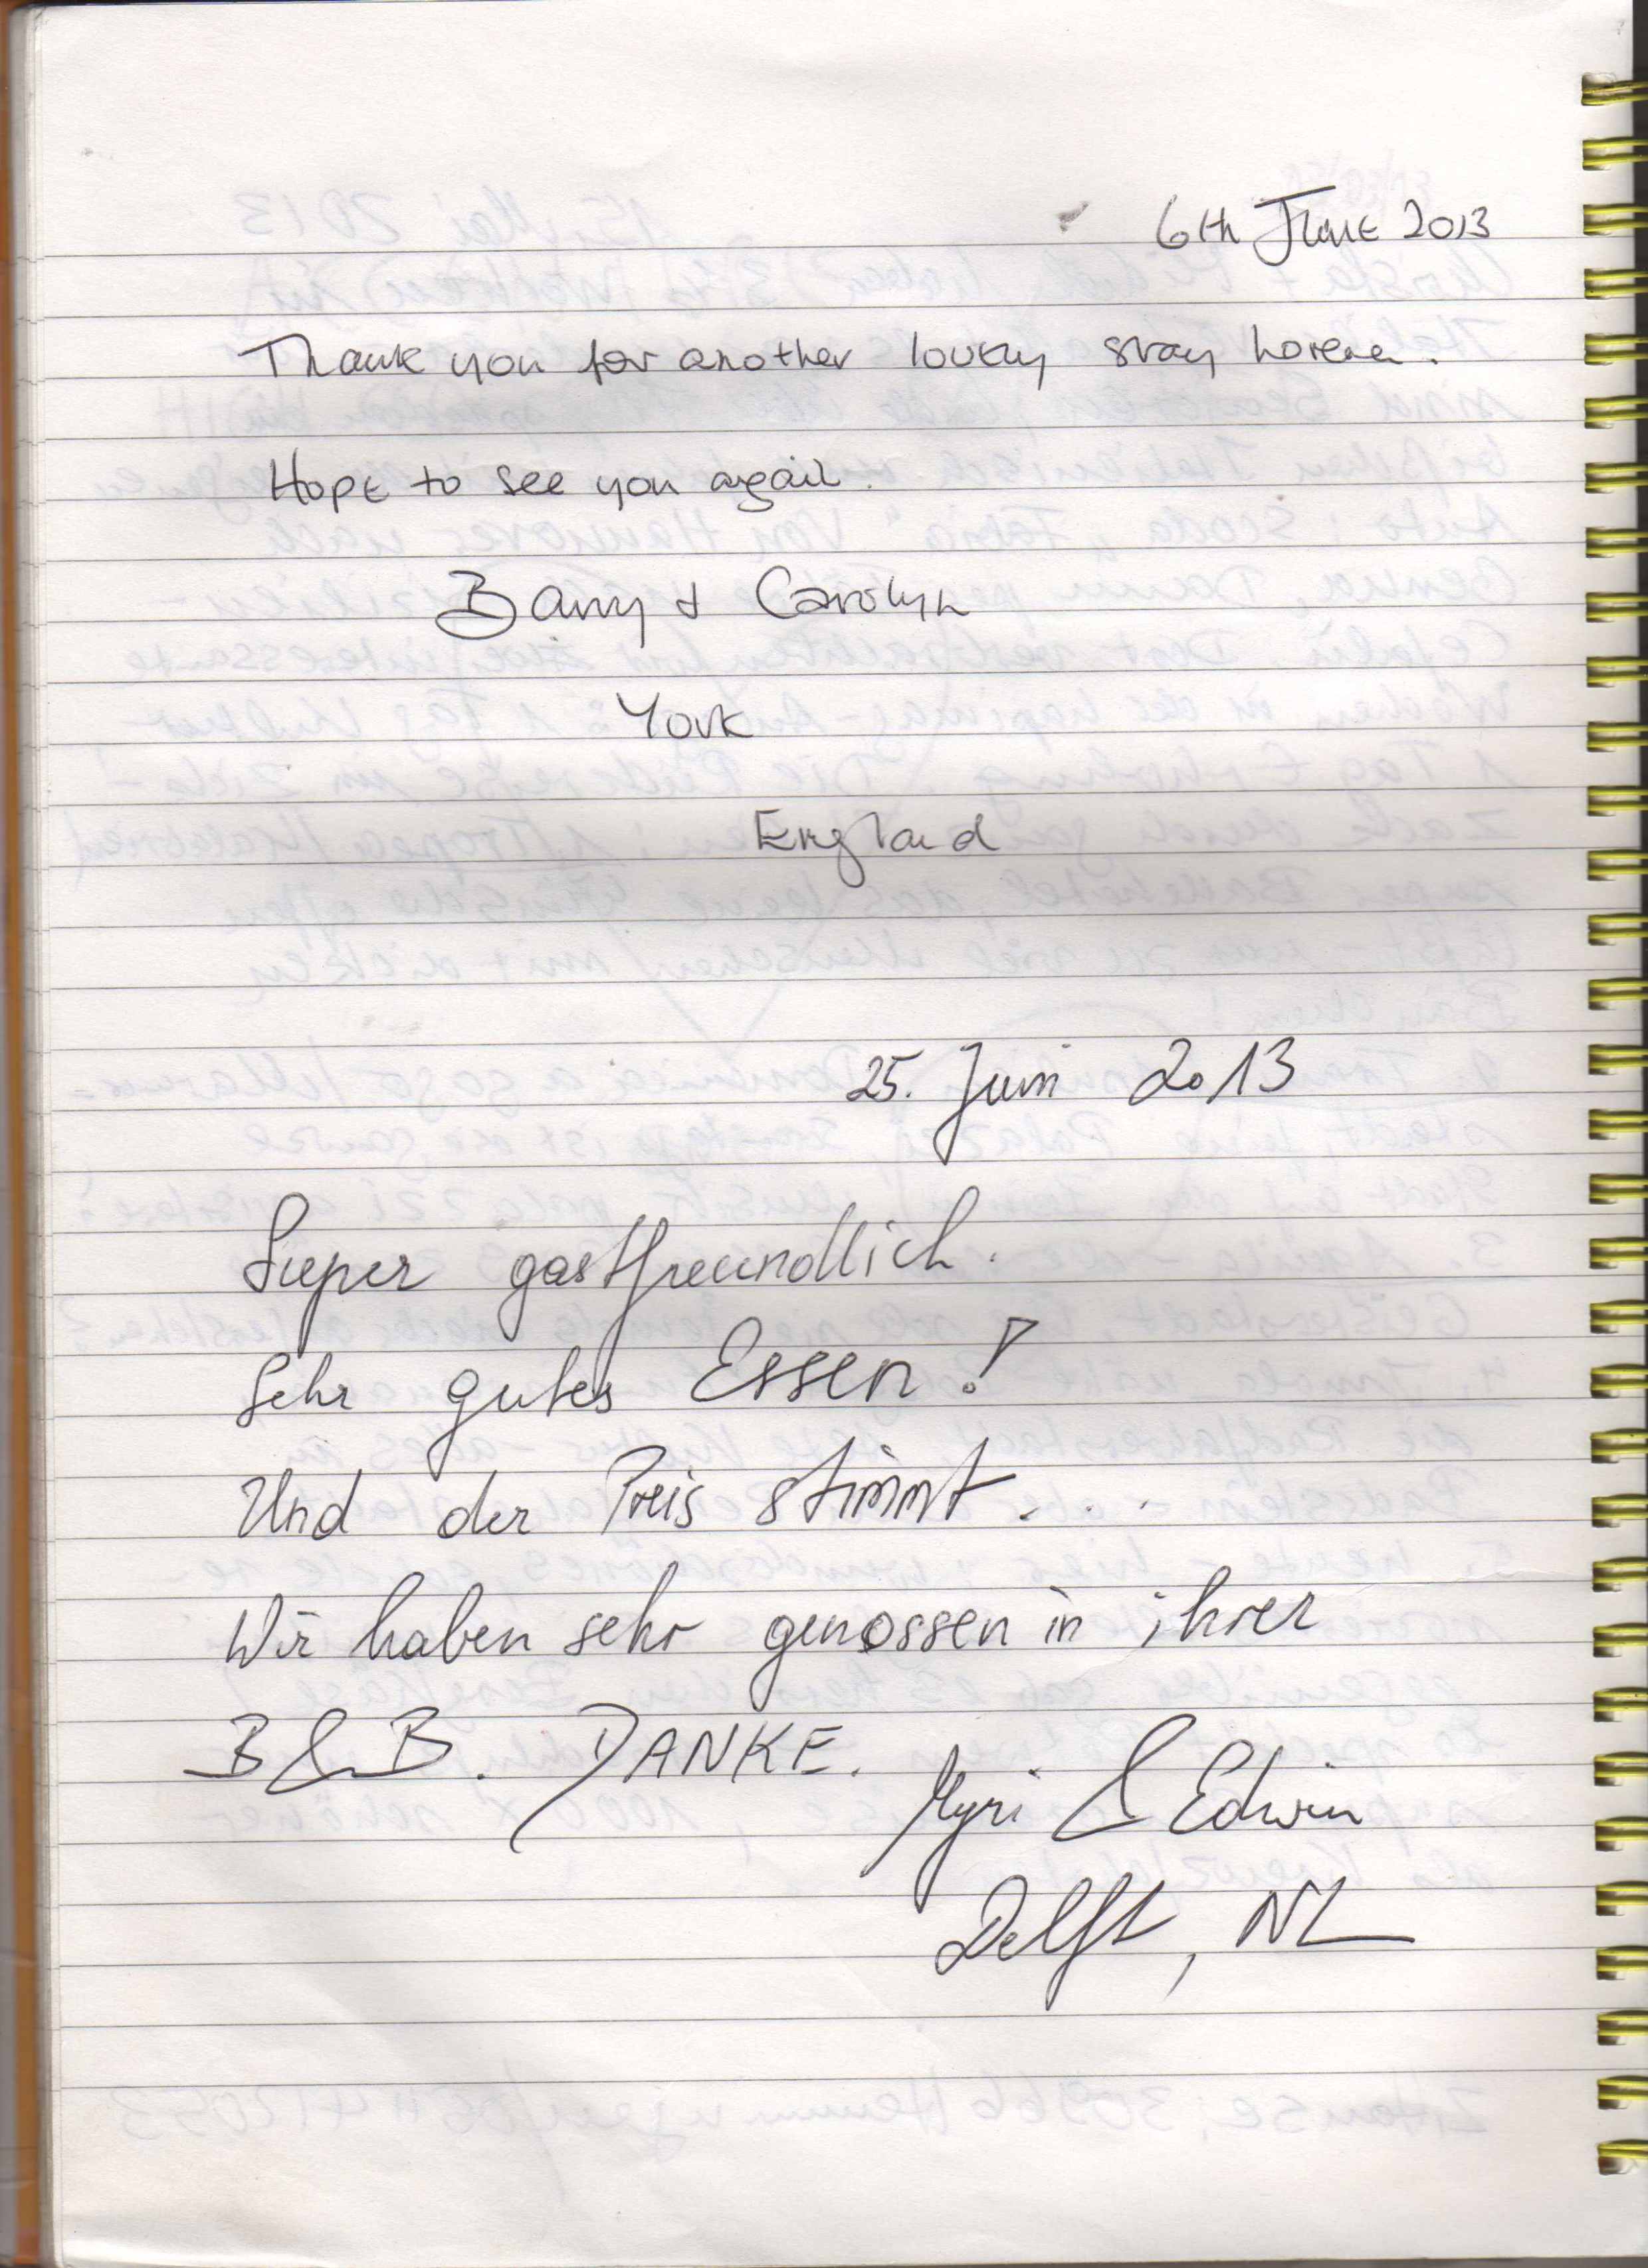 6th June 2013
Thank you for another lovely stay Lorena.
Hope to see you again.
Barry & Carolyn
York
England
25. Juni 2013
Super gastfreundlich.
Sehr gutes Essen!
Und der Preis stimmt....
Wir haben sehr genossen in ihrer
B&B. DANKE.
Myri & Edwin
Delft, NL